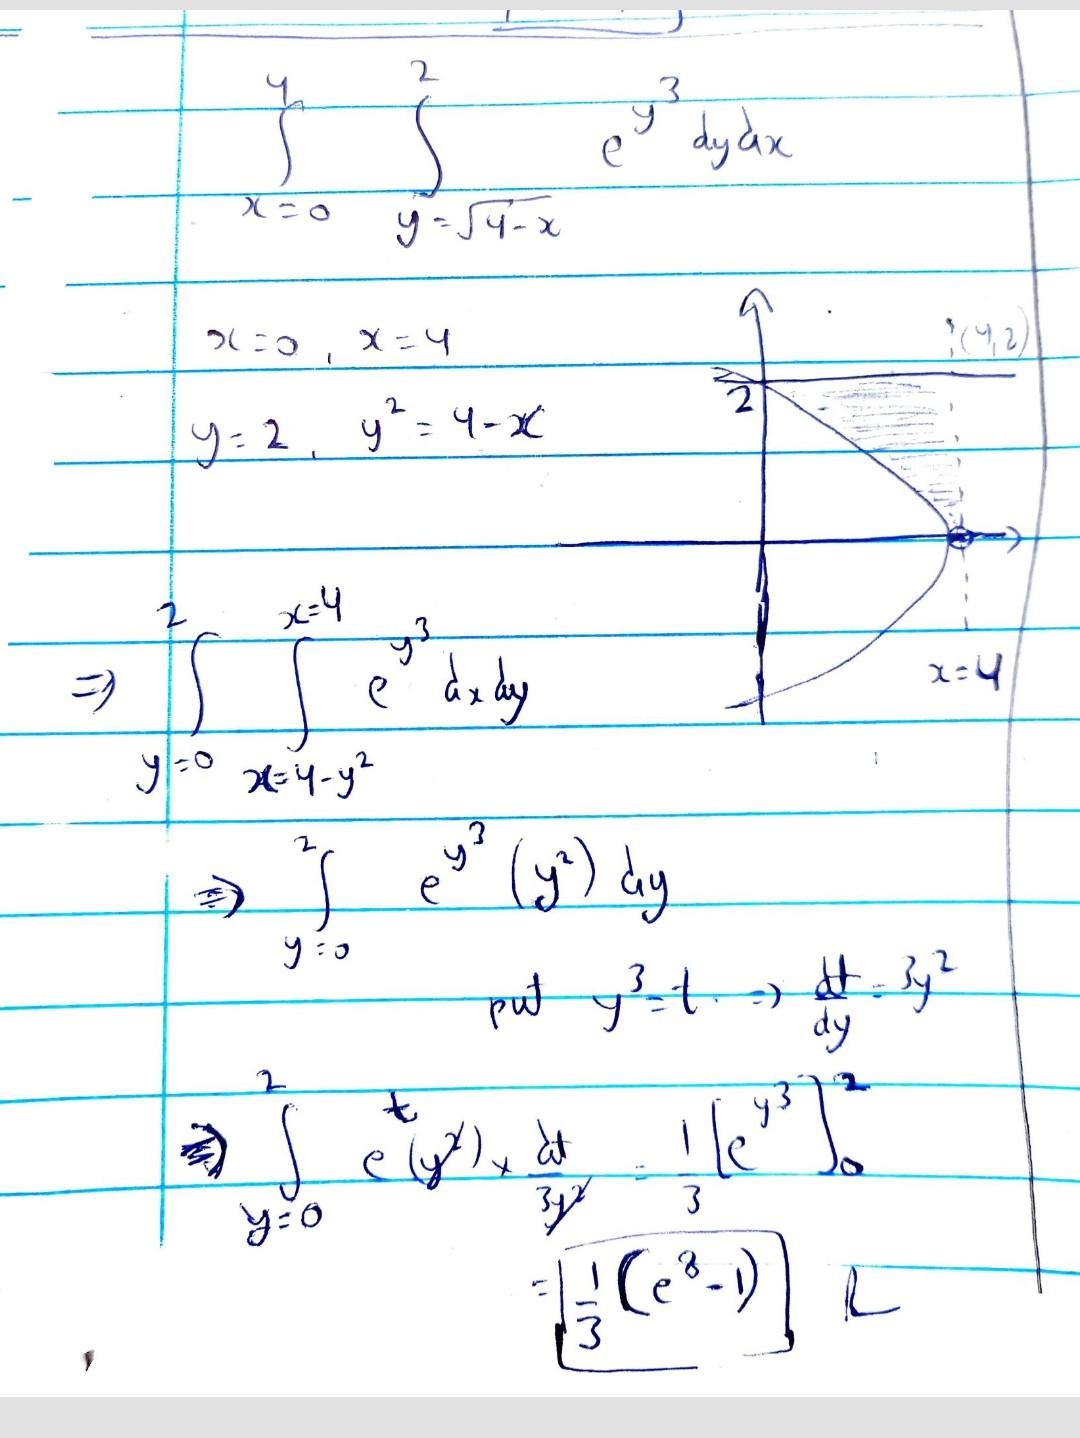 ∫_{x=0}^{4} ∫_{y=√(4-x)}^{2} e^{y^3} dy dx
x=0, x=4
y=2, y^2=4-x
2
(4,2)
x=4
⇒ ∫_{y=0}^{2} ∫_{x=4-y^2}^{x=4} e^{y^3} dx dy
⇒ ∫_{y=0}^{2} e^{y^3} (y^2) dy
put y^3=t. ⇒ dt/dy = 3y^2
⇒ ∫_{y=0}^{2} e^t (y^2) × dt/3y^2 = 1/3 [e^{y^3}]_0^2
= 1/3 (e^8-1)